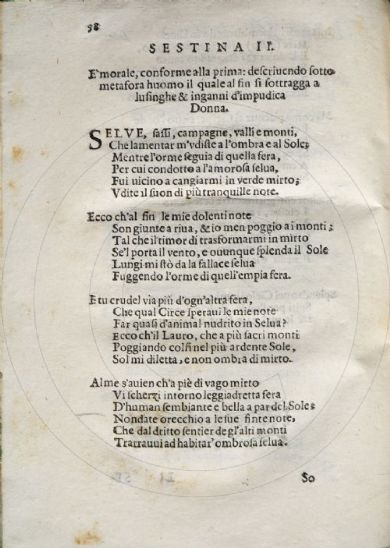 98
SESTINA II.
E' morale, conforme alla prima: descriuendo sotto
metafora huomo il quale al fin si sottragga a
lusinghe & inganni d'impudica
Donna.
SELVE, sassi, campagne, valli e monti,
Che lamentar m'vdiste a l'ombra e al Sole;
Mentre l'orme seguia di quella fera,
Per cui condotto a l'amorosa selua,
Fui uicino a cangiarmi in verde mirto;
Vdite il suon di più tranquille note.
Ecco ch'al fin le mie dolenti note
Son giunte a riua, & io men poggio a i monti;
Tal che il timor di trasformarmi in mirto
Se'l porta il vento, e ouunque splenda il Sole
Lungi mi stò da la fallace selua
Fuggendo l'orme di quell'empia fera.
E tu crudel via più d'ogn'altra fera,
Che qual Circe speraui le mie note
Far quasi d'animal nudrito in Selua?
Ecco ch'il Lauro, che a più sacri monti
Poggiando colsi nel più ardente Sole,
Sol mi diletta, e non ombra di mirto.
Alme s'auien ch'a piè di vago mirto
Vi scherzi intorno leggiadretta fera
D'human sembiante e bella a par del Sole;
Non date orecchio a le sue finte note,
Che dal dritto sentier de gl'alti monti
Trarrauui ad habitar' ombrosa selua.
So